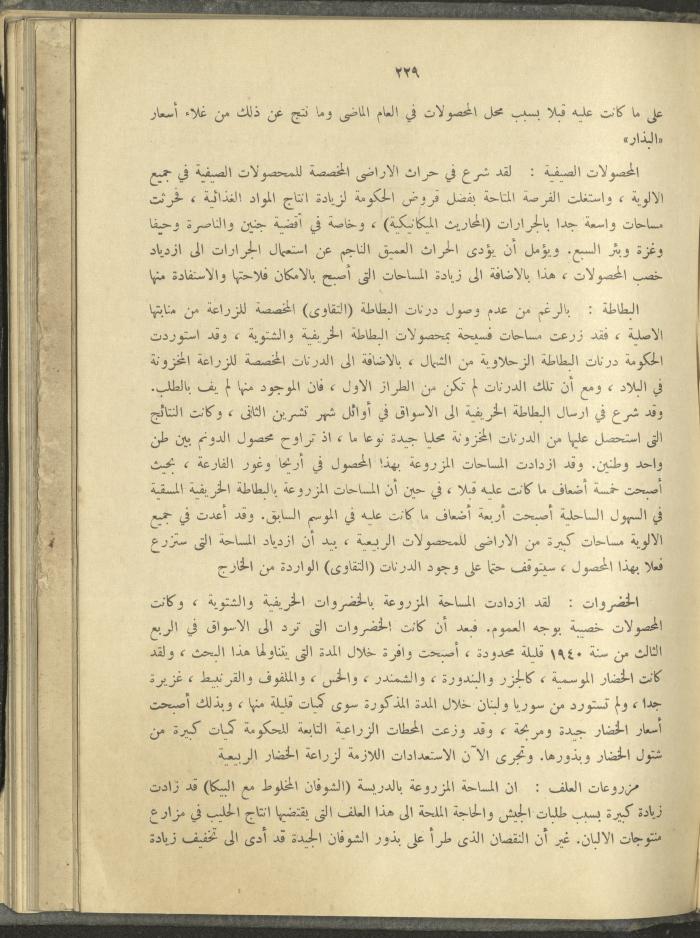 ٢٢٩
على ما كانت عليه قبلا بسبب محل المحصولات في العام الماضى وما نتج عن ذلك من غلاء أسعار
«البذار»
المحصولات الصيفية : لقد شرع في حراث الاراضى المخصصة للمحصولات الصيفية في جميع
الالوية ، واستغلت الفرصة المتاحة بفضل قروض الحكومة لزيادة انتاج المواد الغذائية ، فحرثت
مساحات واسعة جدا بالجرارات (المحاريث الميكانيكية) ، وخاصة في أقضية جنين والناصرة وحيفا
وغزة وبئر السبع. ويؤمل أن يؤدى الحراث العميق الناجم عن استعمال الجرارات الى ازدياد
خصب المحصولات ، هذا بالاضافة الى زيادة المساحات التى أصبح بالامكان فلاحتها والاستفادة منها
البطاطة : بالرغم من عدم وصول درنات البطاطة (التقاوى) المخصصة للزراعة من منابتها
الاصلية ، فقد زرعت مساحات فسيحة بمحصولات البطاطة الخريفية والشتوية ، وقد استوردت
الحكومة درنات البطاطة الزحلاوية من الشمال ، بالاضافة الى الدرنات المخصصة للزراعة المخزونة
في البلاد ، ومع أن تلك الدرنات لم تكن من الطراز الاول ، فان الموجود منها لم يف بالطلب.
وقد شرع في ارسال البطاطة الخريفية الى الاسواق في أوائل شهر تشرين الثانى ، وكانت النتائج
التى استحصل عليها من الدرنات المخزونة محليا جيدة نوعا ما ، اذ تراوح محصول الدونم بين طن
واحد وطنين. وقد ازدادت المساحات المزروعة بهذا المحصول في أريحا وغور الفارعة ، بحيث
أصبحت خمسة أضعاف ما كانت عليه قبلا ، في حين أن المساحات المزروعة بالبطاطة الخريفية المسقية
في السهول الساحلية أصبحت أربعة أضعاف ما كانت عليه في الموسم السابق. وقد أعدت في جميع
الالوية مساحات كبيرة من الاراضى للمحصولات الربيعية ، بيد أن ازدياد المساحة التى ستزرع
فعلا بهذا المحصول ، سيتوقف حتما على وجود الدرنات (التقاوى) الواردة من الخارج
الخضروات : لقد ازدادت المساحة المزروعة بالخضروات الخريفية والشتوية ، وكانت
المحصولات خصيبة بوجه العموم. فبعد أن كانت الخضروات التى ترد الى الاسواق في الربع
الثالث من سنة ١٩٤٠ قليلة محدودة ، أصبحت وافرة خلال المدة التى يتناولها هذا البحث ، ولقد
كانت الخضار الموسمية ، كالجزر والبندورة ، والشمندر ، والخس ، والملفوف والقرنبيط ، غزيرة
جدا ، ولم تستورد من سوريا ولبنان خلال المدة المذكورة سوى كميات قليلة منها ، وبذلك أصبحت
أسعار الخضار جيدة ومربحة ، وقد وزعت المحطات الزراعية التابعة للحكومة كميات كبيرة من
شتول الخضار وبذورها. وتجرى الآن الاستعدادات اللازمة لزراعة الخضار الربيعية
مزروعات العلف : ان المساحة المزروعة بالدريسة (الشوفان المخلوط مع البيكا) قد زادت
زيادة كبيرة بسبب طلبات الجيش والحاجة الملحة الى هذا العلف التى يقتضيها انتاج الحليب في مزارع
منتوجات الالبان. غير أن النقصان الذى طرأ على بذور الشوفان الجيدة قد أدى الى تخفيف زيادة